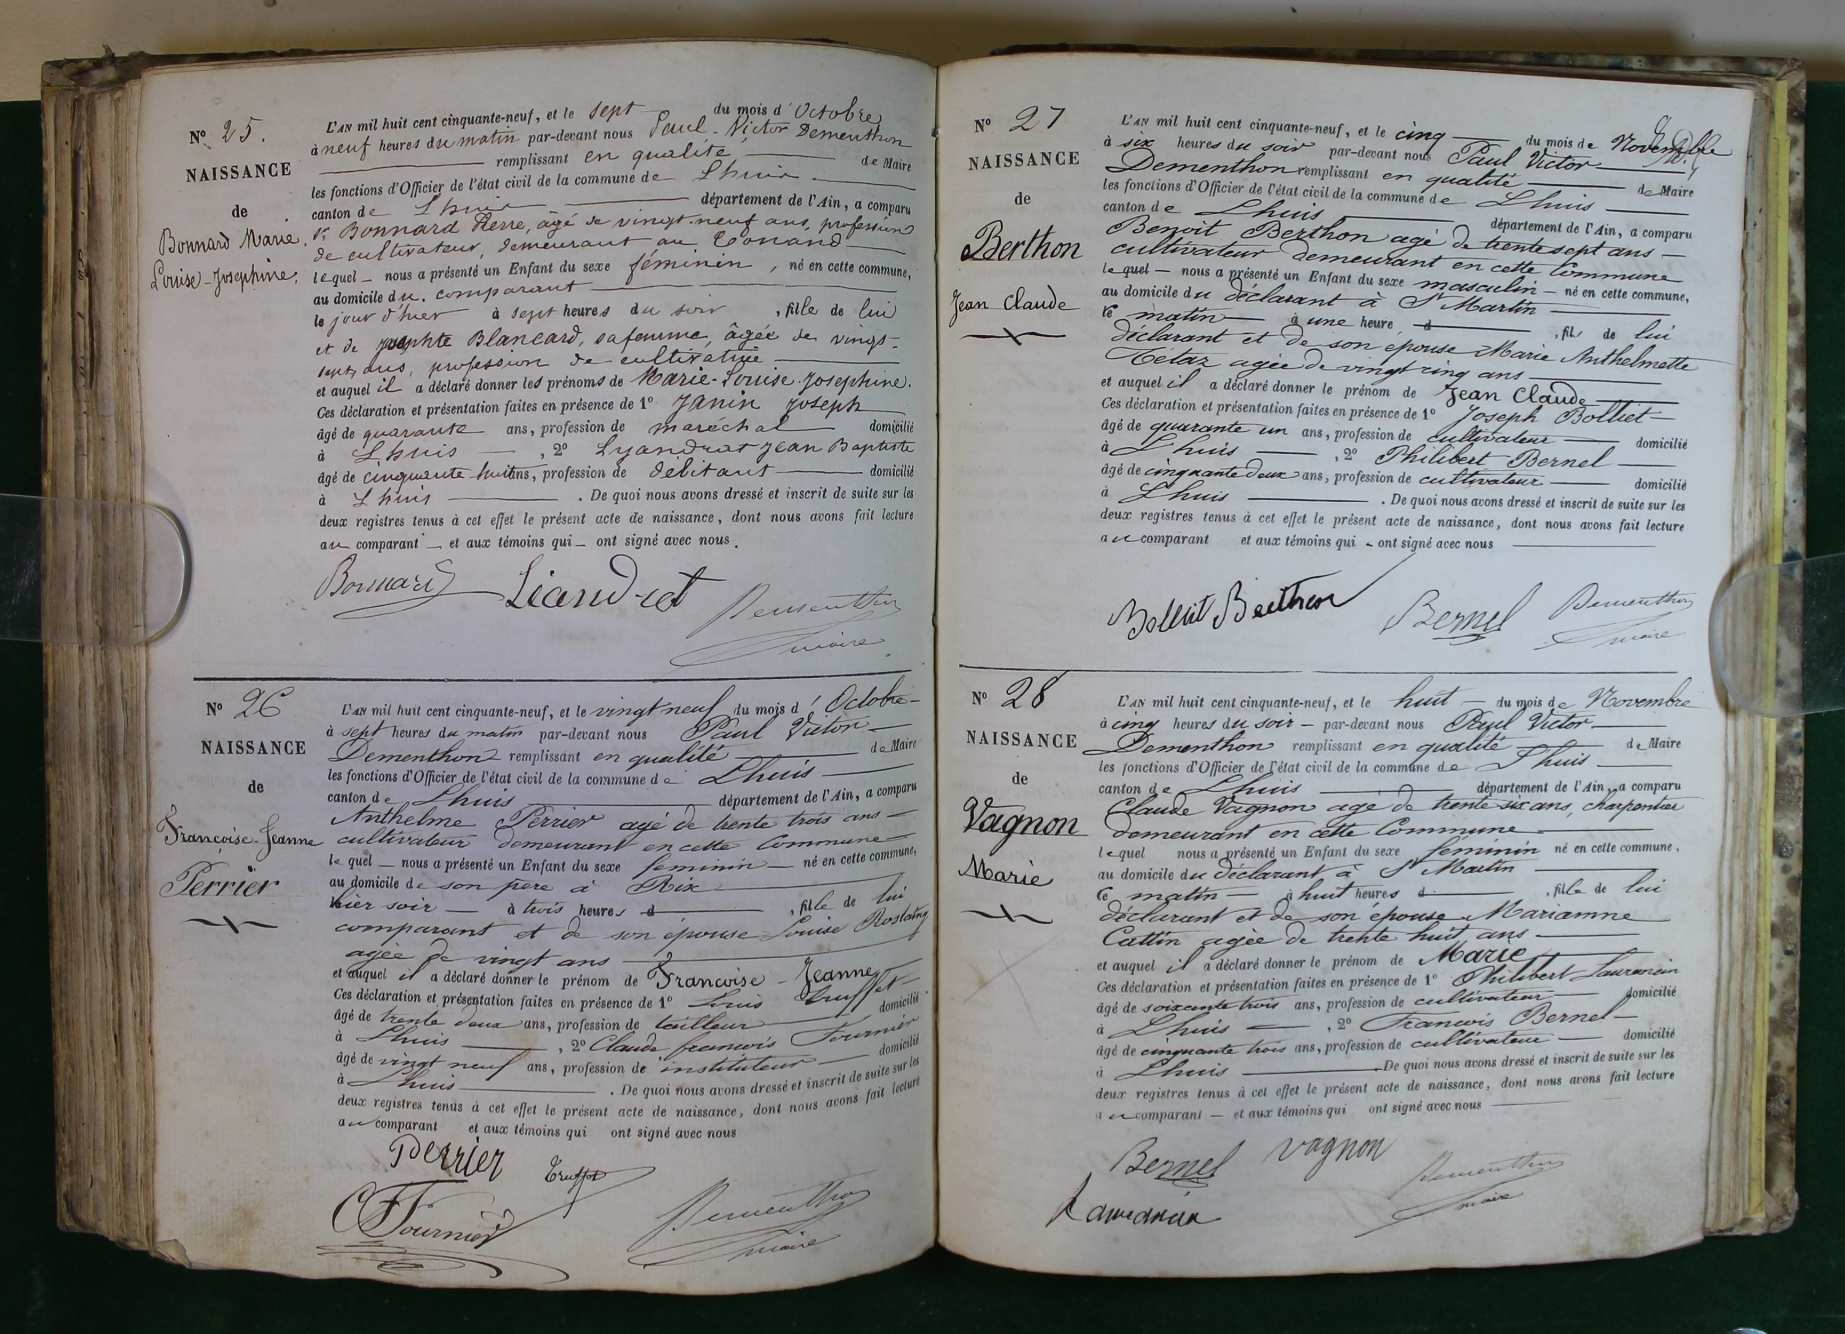 N° 25.
NAISSANCE
de
Bonnard Marie
Louise-Josephine.
L'AN mil huit cent cinquante-neuf, et le sept du mois d'Octobre
à neuf heures du matin par-devant nous Paul-Victor Dementhon
remplissant en qualité de Maire
les fonctions d'Officier de l'état civil de la commune de Lhuis
canton de Lhuis département de l'Ain, a comparu
Bonnard Pierre, âgé de vingt-neuf ans, profession
de cultivateur, demeurant au Conand
lequel nous a présenté un Enfant du sexe féminin, né en cette commune,
au domicile du comparant
le jour d'hier à sept heures du soir, fille de lui
et de Blancard, sa femme, âgée de vingt-
sept ans, profession de cultivatrice
et auquel il a déclaré donner les prénoms de Marie-Louise-Josephine.
Ces déclaration et présentation faites en présence de 1° Janin Joseph
âgé de quarante ans, profession de maréchal domicilié
à Lhuis, 2° Lyandrat Jean Baptiste
âgé de cinquante-huit ans, profession de débitant domicilié
à Lhuis. De quoi nous avons dressé et inscrit de suite sur les
deux registres tenus à cet effet le présent acte de naissance, dont nous avons fait lecture
au comparant et aux témoins qui ont signé avec nous.
Bonnard Liandrat Dementhon
maire
N° 26
NAISSANCE
de
Francoise-Jeanne
Perrier
L'AN mil huit cent cinquante-neuf, et le vingt neuf du mois d'Octobre
à sept heures du matin par-devant nous Paul Victor
Dementhon remplissant en qualité de Maire
les fonctions d'Officier de l'état civil de la commune de Lhuis
canton de Lhuis département de l'Ain, a comparu
Anthelme Perrier agé de trente trois ans
cultivateur demeurant en cette Commune
lequel nous a présenté un Enfant du sexe feminin né en cette commune,
au domicile de son père à Rix
hier soir à trois heures d, fille de lui
comparant et de son épouse Louise Rostaing
agée de vingt ans
et auquel il a déclaré donner le prénom de Francoise-Jeanne
Ces déclaration et présentation faites en présence de 1° Louis Truffet
âgé de trente deux ans, profession de tailleur domicilié
à Lhuis, 2° Claude francois Fournier
âgé de vingt neuf ans, profession de instituteur domicilié
à Lhuis. De quoi nous avons dressé et inscrit de suite sur les
deux registres tenus à cet effet le présent acte de naissance, dont nous avons fait lecture
au comparant et aux témoins qui ont signé avec nous
Perrier Truffet
CF Fournier Dementhon
maire
N° 27
NAISSANCE
de
Berthon
Jean Claude
L'AN mil huit cent cinquante-neuf, et le cinq du mois de Novembre
à six heures du soir par-devant nous Paul Victor
Dementhon remplissant en qualité de Maire
les fonctions d'Officier de l'état civil de la commune de Lhuis
canton de Lhuis département de l'Ain, a comparu
Benoit Berthon agé de trente sept ans
cultivateur demeurant en cette Commune
lequel nous a présenté un Enfant du sexe masculin né en cette commune,
au domicile du déclarant à St Martin
le matin à une heure d, fils de lui
déclarant et de son épouse Marie Anthelmette
Telaz agée de vingt cinq ans
et auquel il a déclaré donner le prénom de Jean Claude
Ces déclaration et présentation faites en présence de 1° Joseph Bolliet
âgé de quarante un ans, profession de cultivateur domicilié
à Lhuis, 2° Philibert Bernel
âgé de cinquante deux ans, profession de cultivateur domicilié
à Lhuis. De quoi nous avons dressé et inscrit de suite sur les
deux registres tenus à cet effet le présent acte de naissance, dont nous avons fait lecture
au comparant et aux témoins qui ont signé avec nous
Bolliet Berthon Bernel Dementhon
maire
N° 28
NAISSANCE
de
Vagnon
Marie
L'AN mil huit cent cinquante-neuf, et le huit du mois de Novembre
à cinq heures du soir par-devant nous Paul Victor
Dementhon remplissant en qualité de Maire
les fonctions d'Officier de l'état civil de la commune de Lhuis
canton de Lhuis département de l'Ain, a comparu
Claude Vagnon agé de trente six ans, charpentier
demeurant en cette Commune
lequel nous a présenté un Enfant du sexe féminin né en cette commune,
au domicile du déclarant à St Martin
le matin à huit heures d, fille de lui
déclarant et de son épouse Marianne
Cattin agée de trente huit ans
et auquel il a déclaré donner le prénom de Marie
Ces déclaration et présentation faites en présence de 1° Philibert Laurancin
âgé de soixante trois ans, profession de cultivateur domicilié
à Lhuis, 2° Francois Bernel
âgé de cinquante trois ans, profession de cultivateur domicilié
à Lhuis De quoi nous avons dressé et inscrit de suite sur les
deux registres tenus à cet effet le présent acte de naissance, dont nous avons fait lecture
au comparant et aux témoins qui ont signé avec nous
Bernel Vagnon Dementhon
maire
Laurancin